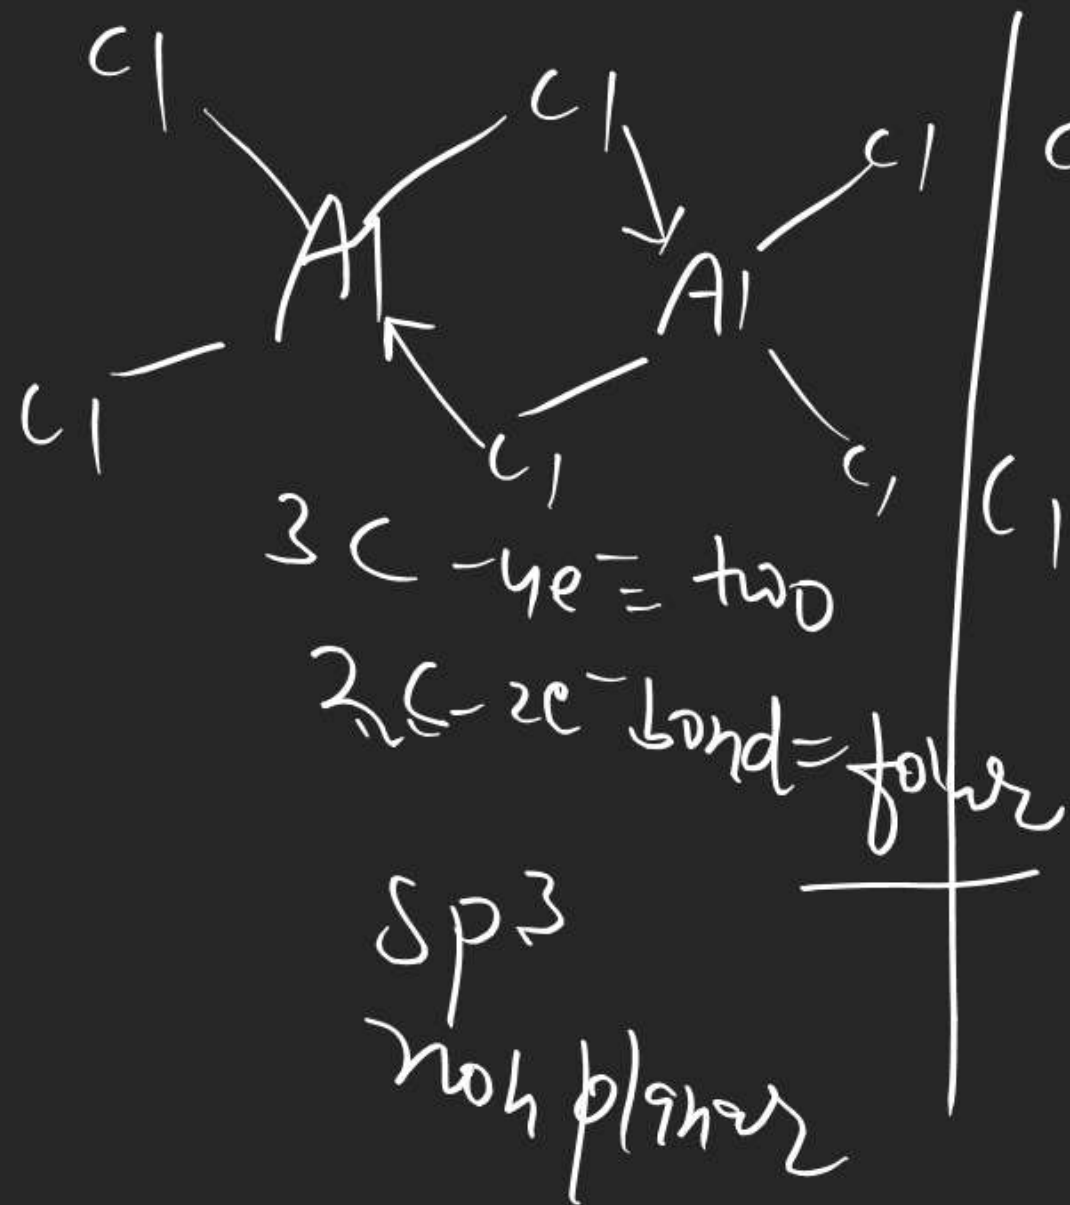 Cl Cl Cl C
Al Al
Cl Cl Cl Cl
3C-4e⁻ = two
2C-2e⁻ bond = four
Sp3
non planar